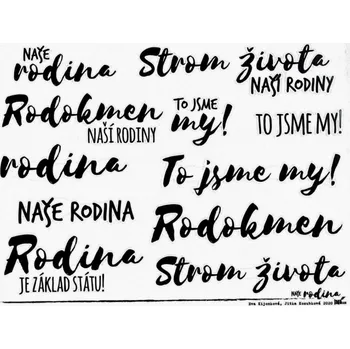 NAŠE
rodina
Strom života
NAŠÍ RODINY
Rodokmen
NAŠÍ RODINY
TO JSME
my!
TO JSME MY!
rodina
To jsme my!
NAŠE RODINA
Rodokmen
Rodina
JE ZÁKLAD STÁTU!
Strom života
NAŠE
rodina